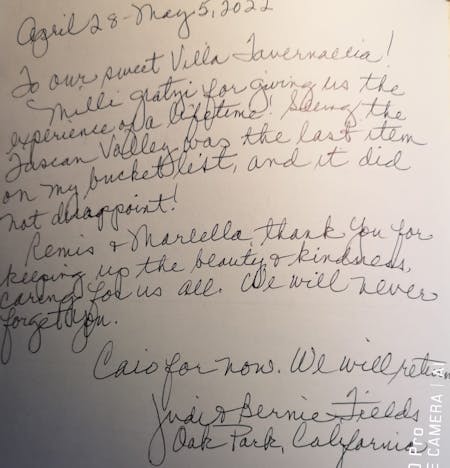 April 28 - May 5, 2022
To our sweet Villa Tavernaccia!
Milli gratzi for giving us the
experience of a lifetime! Seeing the
Tuscan Valley was the last item
on my bucket list, and it did
not disappoint!
Remis & Marcella, thank you for
keeping up the beauty & kindness,
caring for us all. We will never
forget you.
Caio for now. We will return
Judi & Bernie Fields
Oak Park, California
O Pro
E CAMERA | AI